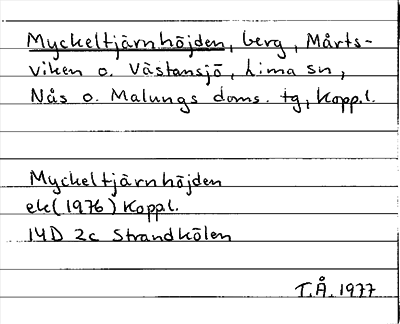 Myckeltjärnhöjden, berg, Mårts-
viken o. Västansjö, Lima sn,
Nås o. Malungs doms. tg, Koppl.
Myckeltjärnhöjden
ek(1976) Koppl.
14D 2c Strandkölen
T.Å. 1977